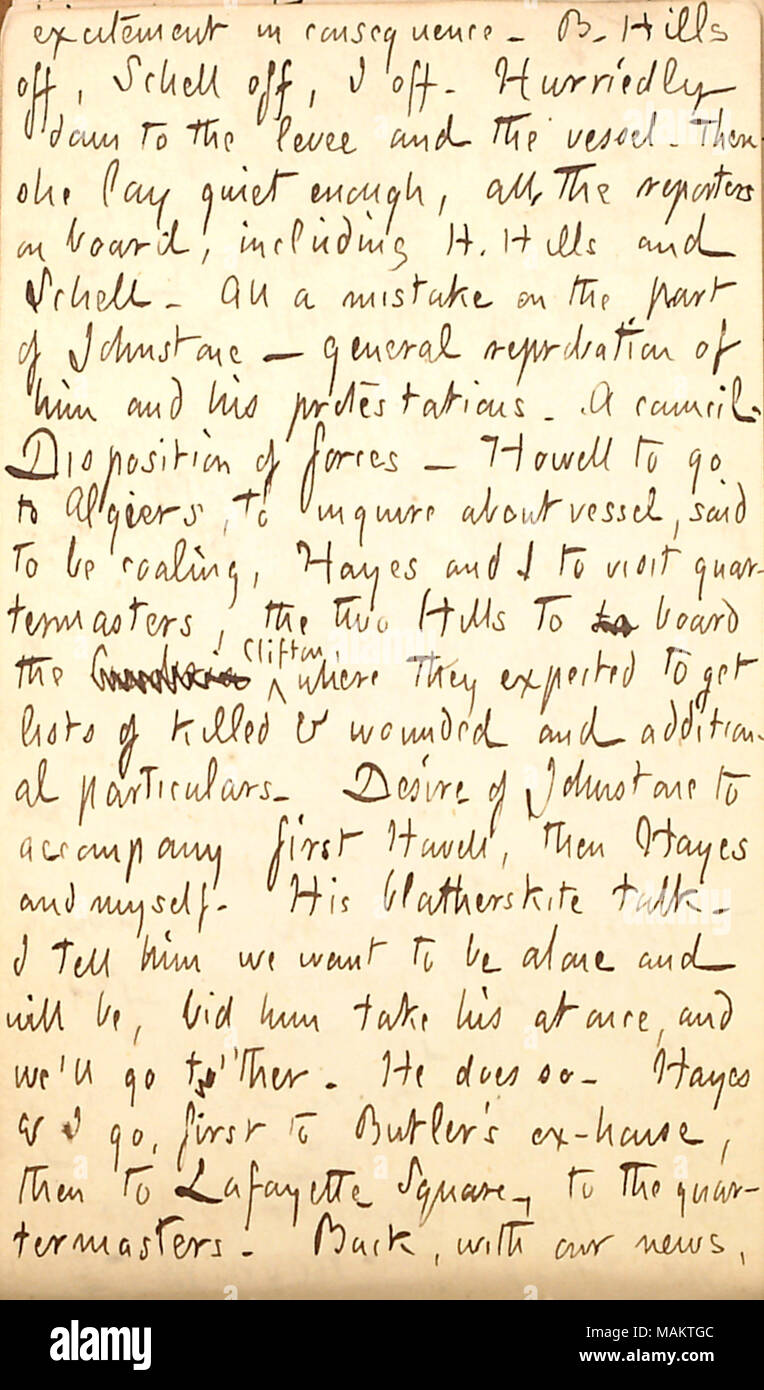 excitement in consequence - B. Hills
off, Schell off, I off - Hurriedly
down to the levee and the vessel - There
she lay quiet enough, all the reporters
on board, including H. Hills and
Schell - All a mistake on the part
of Johnstone — general reprobation of
him and his protestations - A council -
Disposition of forces — Howell to go
to Algiers, to inquire about vessel, said
to be coaling, Hayes and I to visit quar-
termasters, the two Hills to board
the Clifton, where they expected to get
lists of killed & wounded and addition-
al particulars - Desire of Johnstone to
accompany first Howell, then Hayes
and myself - His blatherskite talk -
I tell him we want to be alone and
will be, bid him take his at once, and
we'll go 'ther - He does so - Hayes
& I go, first to Butler's ex-house,
then to Lafayette Square, to the quar-
termasters - Back, with our news,
alamy
Image ID: MAKTGC
www.alamy.com